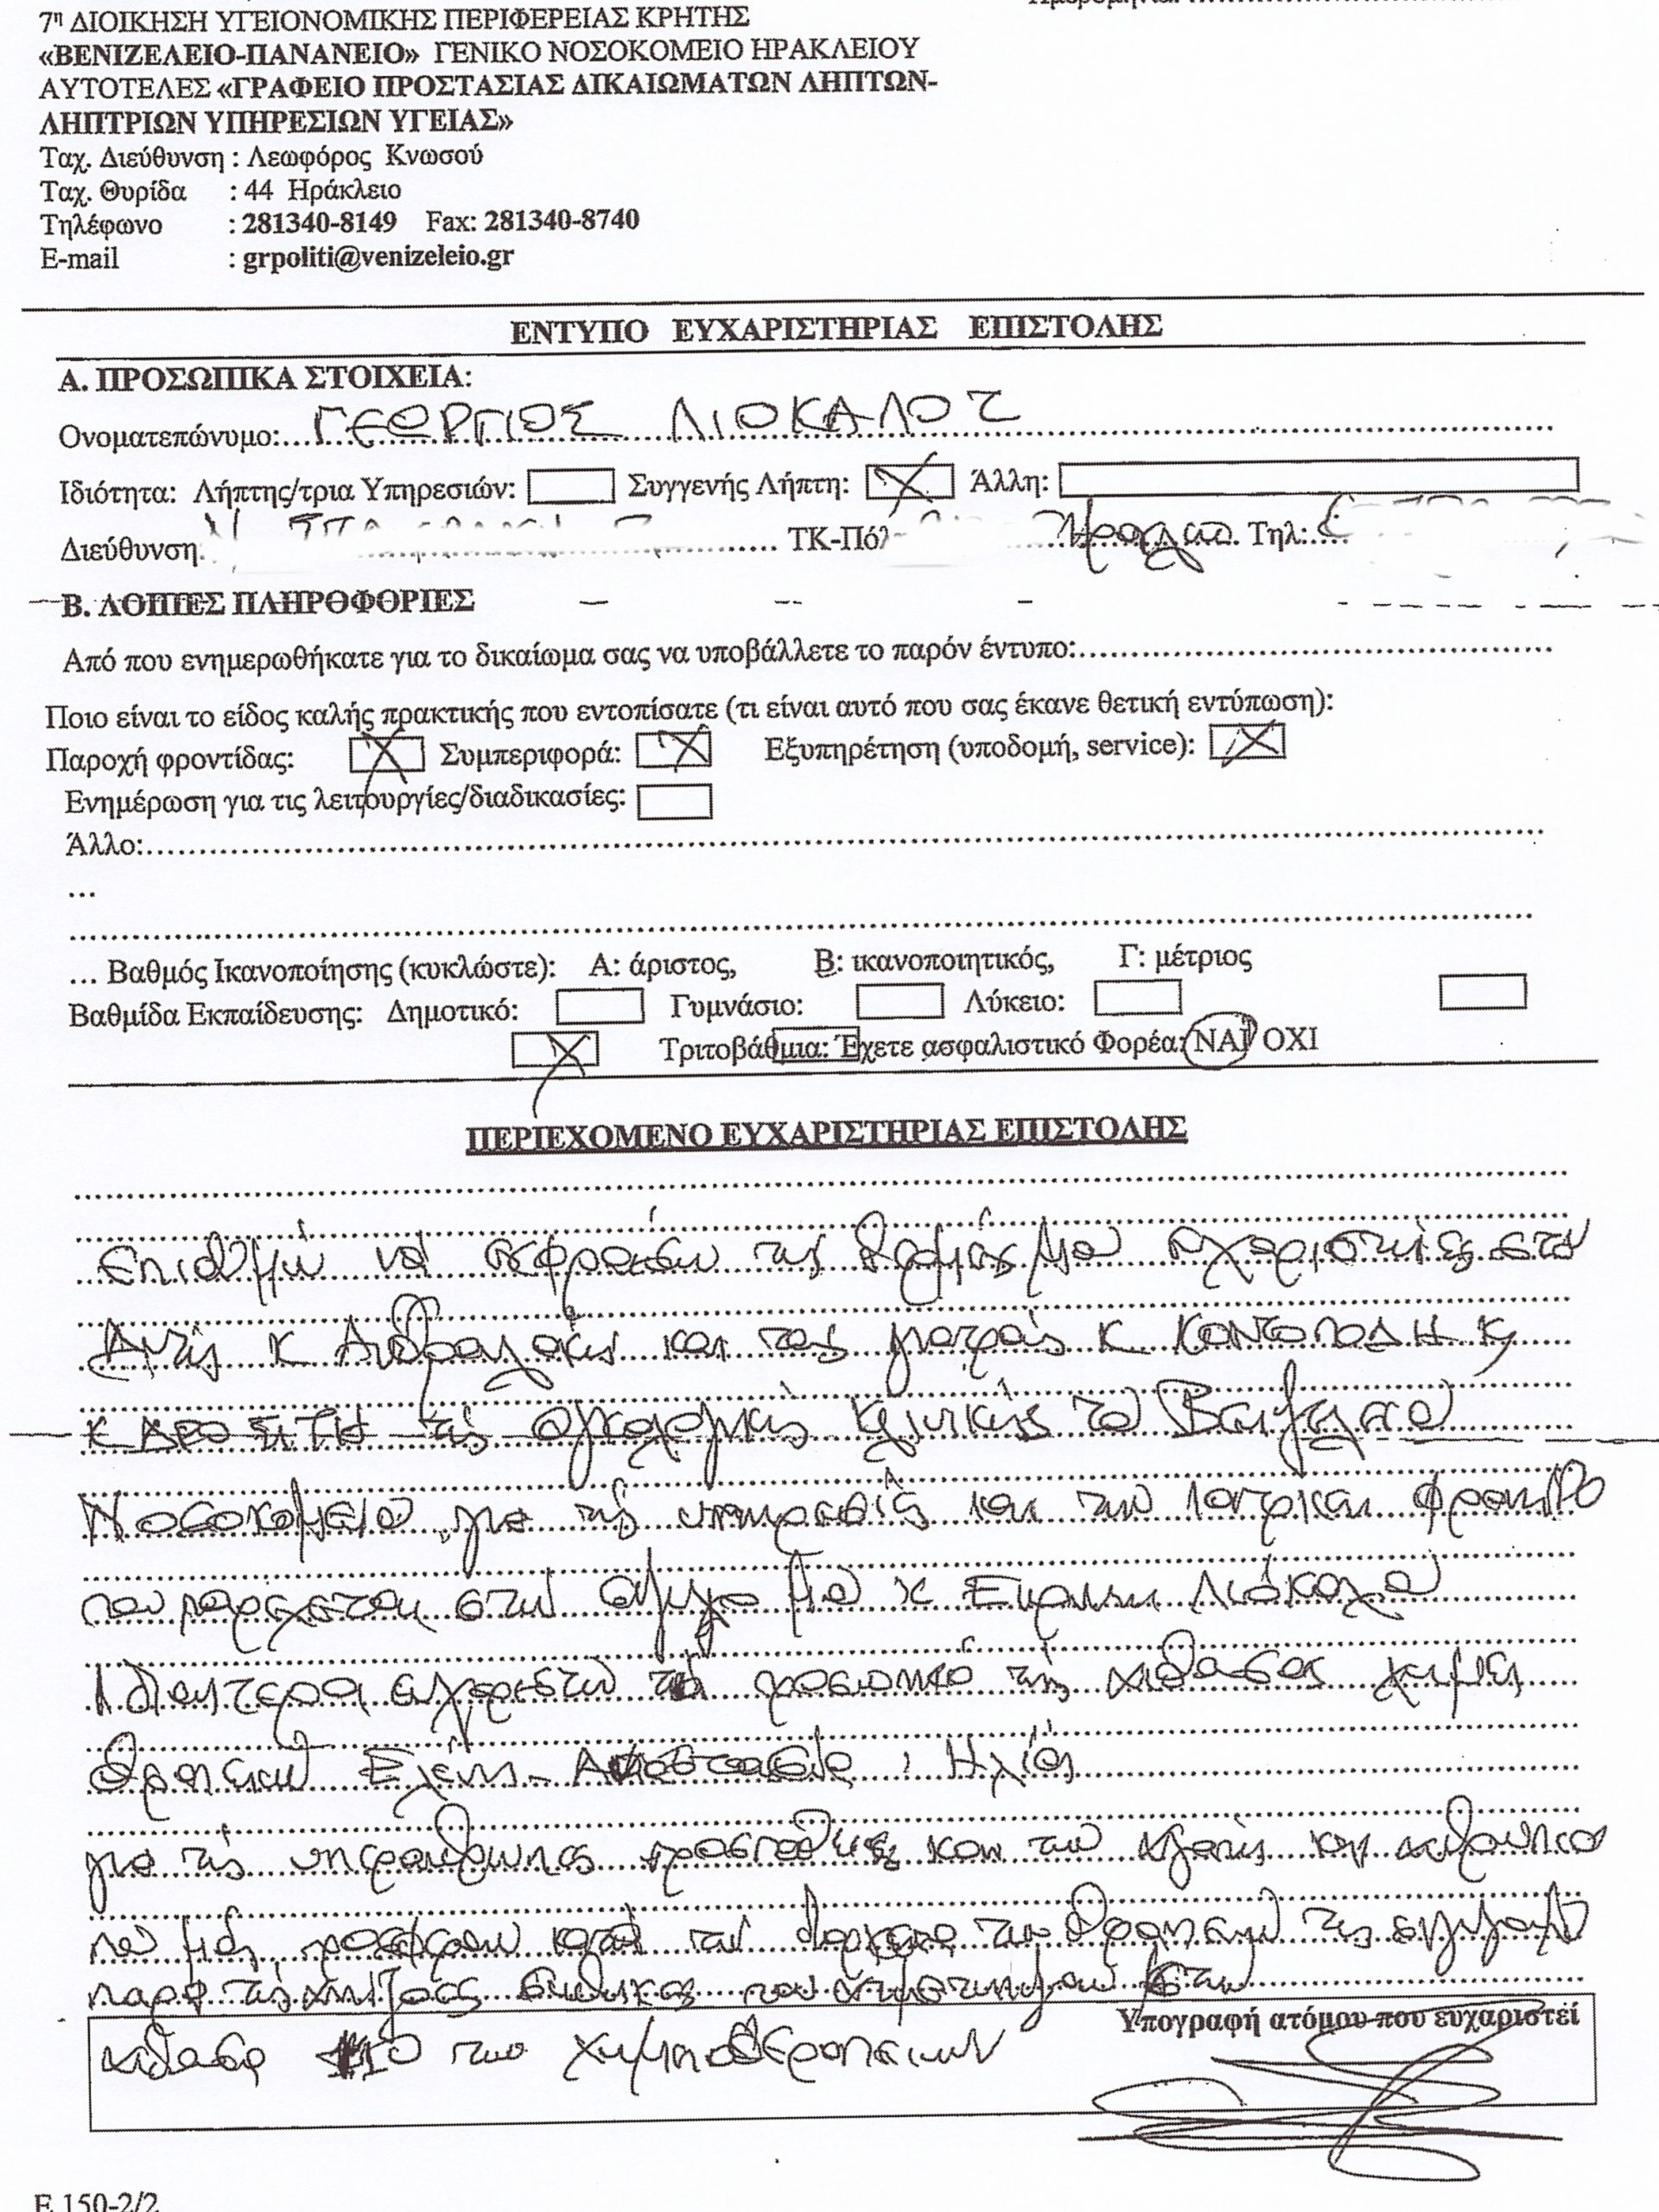 7η ΔΙΟΙΚΗΣΗ ΥΓΕΙΟΝΟΜΙΚΗΣ ΠΕΡΙΦΕΡΕΙΑΣ ΚΡΗΤΗΣ
«ΒΕΝΙΖΕΛΕΙΟ-ΠΑΝΑΝΕΙΟ» ΓΕΝΙΚΟ ΝΟΣΟΚΟΜΕΙΟ ΗΡΑΚΛΕΙΟΥ
ΑΥΤΟΤΕΛΕΣ «ΓΡΑΦΕΙΟ ΠΡΟΣΤΑΣΙΑΣ ΔΙΚΑΙΩΜΑΤΩΝ ΛΗΠΤΩΝ-
ΛΗΠΤΡΙΩΝ ΥΠΗΡΕΣΙΩΝ ΥΓΕΙΑΣ»
Ταχ. Διεύθυνση : Λεωφόρος Κνωσού
Ταχ. Θυρίδα : 44 Ηράκλειο
Τηλέφωνο : 281340-8149 Fax: 281340-8740
E-mail : grpoliti@venizeleio.gr
ΕΝΤΥΠΟ ΕΥΧΑΡΙΣΤΗΡΙΑΣ ΕΠΙΣΤΟΛΗΣ
Α. ΠΡΟΣΩΠΙΚΑ ΣΤΟΙΧΕΙΑ:
Ονοματεπώνυμο: ΓΕΩΡΓΙΟΣ ΛΙΟΚΑΛΟΣ
Ιδιότητα: Λήπτης/τρια Υπηρεσιών: Συγγενής Λήπτη: X Άλλη:
Διεύθυνση ΤΚ-Πόλ Τηλ:
Β. ΛΟΙΠΕΣ ΠΛΗΡΟΦΟΡΙΕΣ
Από που ενημερωθήκατε για το δικαίωμα σας να υποβάλλετε το παρόν έντυπο:
Ποιο είναι το είδος καλής πρακτικής που εντοπίσατε (τι είναι αυτό που σας έκανε θετική εντύπωση):
Παροχή φροντίδας: X Συμπεριφορά: X Εξυπηρέτηση (υποδομή, service): X
Ενημέρωση για τις λειτουργίες/διαδικασίες:
Άλλο:
...
... Βαθμός Ικανοποίησης (κυκλώστε): Α: άριστος, Β: ικανοποιητικός, Γ: μέτριος
Βαθμίδα Εκπαίδευσης: Δημοτικό: Γυμνάσιο: Λύκειο:
X Τριτοβάθμια: Έχετε ασφαλιστικό Φορέα: ΝΑΙ ΟΧΙ
ΠΕΡΙΕΧΟΜΕΝΟ ΕΥΧΑΡΙΣΤΗΡΙΑΣ ΕΠΙΣΤΟΛΗΣ
Επιθυμώ να εκφράσω τις θερμές μου ευχαριστίες στον
Κ και τους γιατρούς Κ ΚΟΝΤΟΠΟΔΗ Κ
Κ ΔΡΟΣΙΤΗ της ογκολογικής κλινικής του Βενιζελείου
Νοσοκομείου για τις υπηρεσίες και την ιατρική φροντίδα
που παρέχεται στην σύζυγο μου κ Ειρήνη Λιόκαλου
Ιδιαίτερα ευχαριστώ το προσωπικό της αίθουσας χημειο
θεραπειών Ελένη - Αναστασία, Ηλία
για τις υπεράνθρωπες προσπάθειες και την
που μας προσφέρουν κατά την διάρκεια των θεραπειών της συζύγου μου
παρά τις συνθήκες που αντιμετωπίζουν στην
αίθουσα των χημειοθεραπειών
Υπογραφή ατόμου που ευχαριστεί
Ε 150-2/2